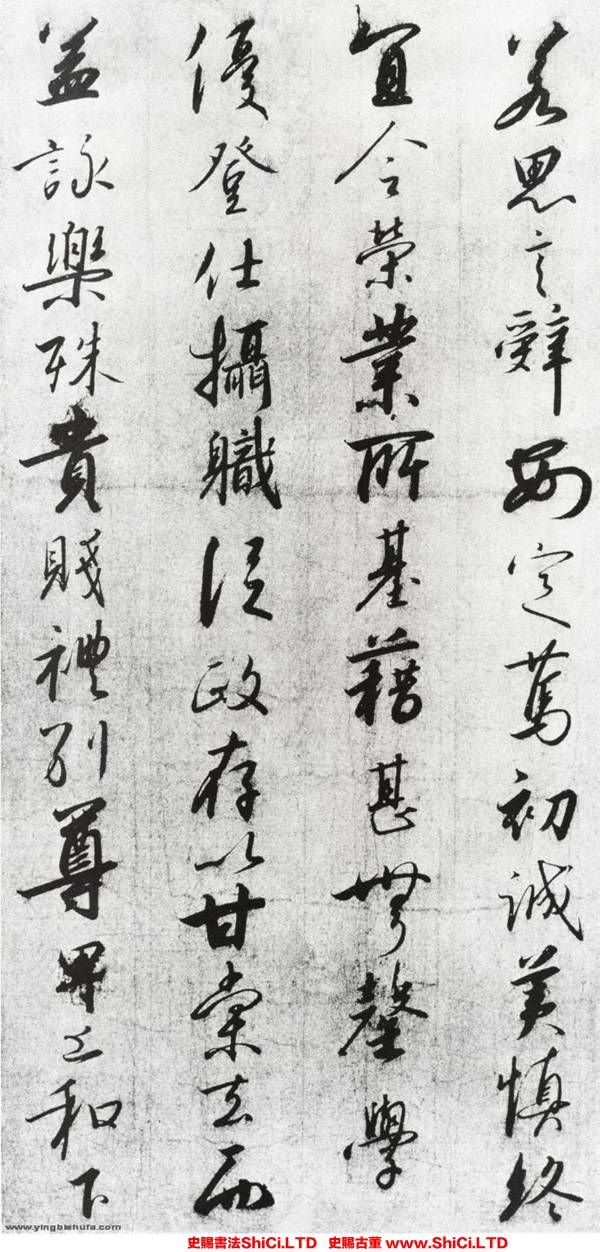 若思言辭安定篤初誠美慎終
宜令榮業所基藉甚無罄學
優登仕攝軄從政存以甘棠去而
益詠樂殊貴賤禮別尊卑上和下
www.yingbishufa.com
史賜書法ShiCi.LTD 史賜古董 www.ShiCi.LTD